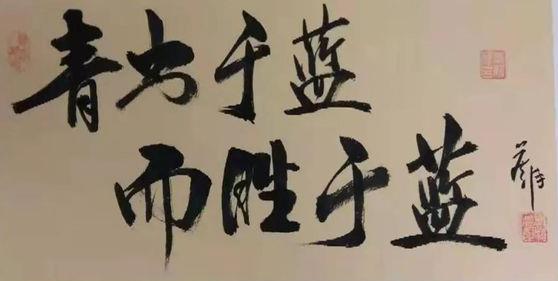 青出于蓝
而胜于蓝